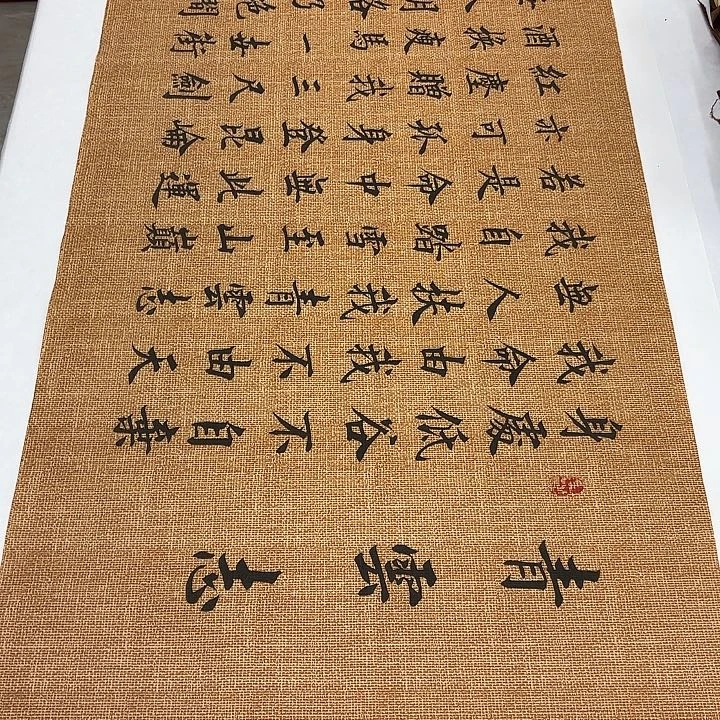 青雲志
身處低谷不自棄
我命由我不由天
無人扶我青雲志
我自踏雪至山巔
若是命中無此運
亦可孤身登昆崘
紅塵贈我三尺劍
酒 瘦馬一